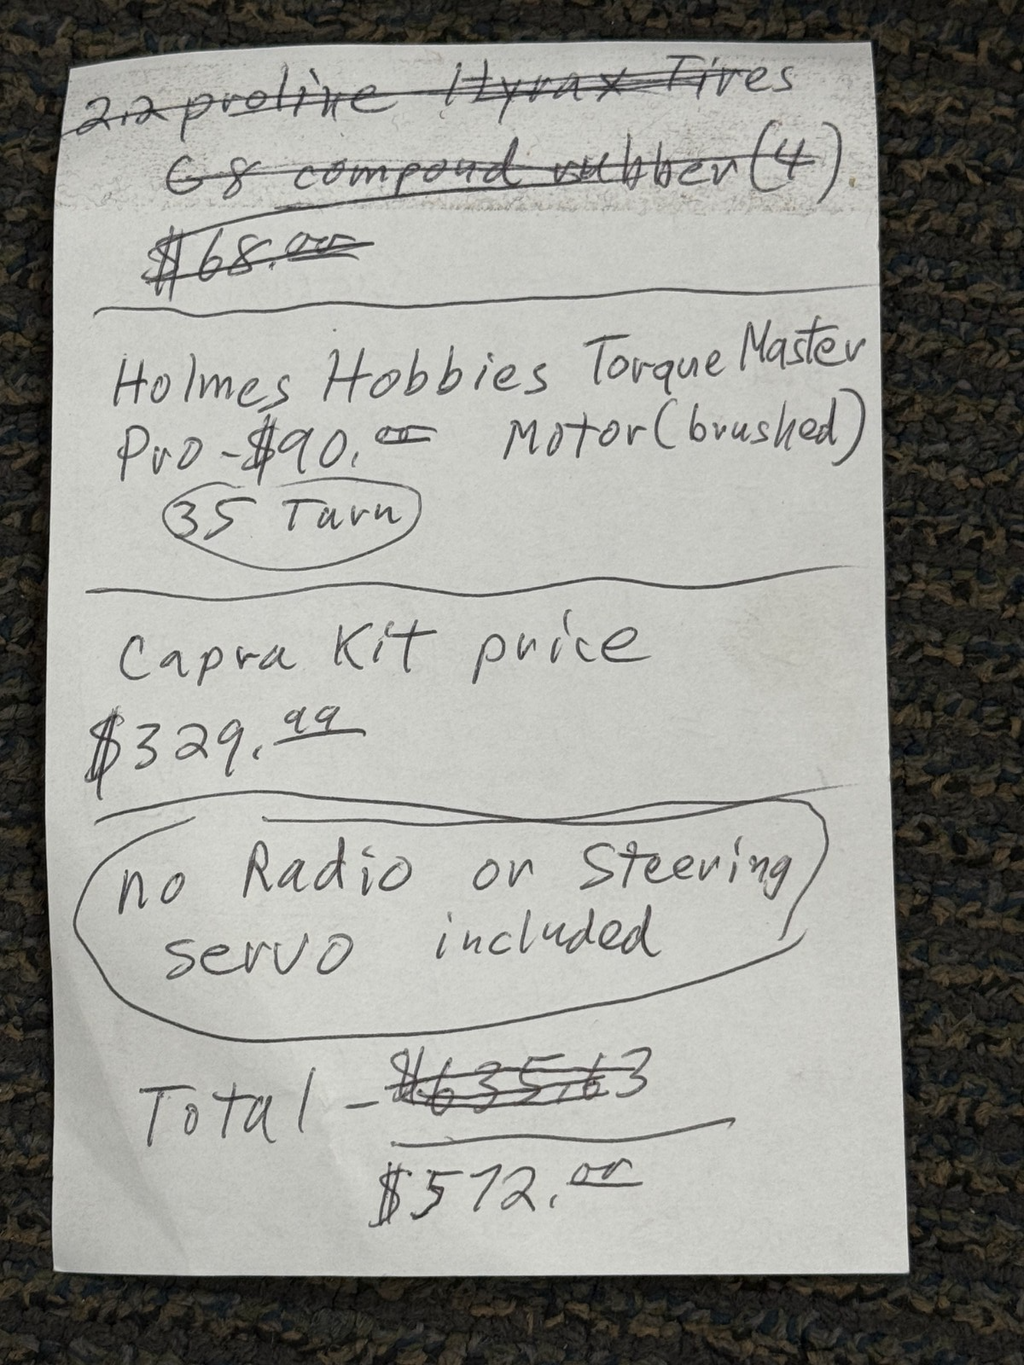 2.2 proline Hyrax Tires
G8 compound rubber (4)
$68.00
Holmes Hobbies Torque Master
Pro - $90.00 Motor (brushed)
35 Turn
Capra Kit price
$329.99
no Radio or Steering
servo included
Total - $635.63
$572.00